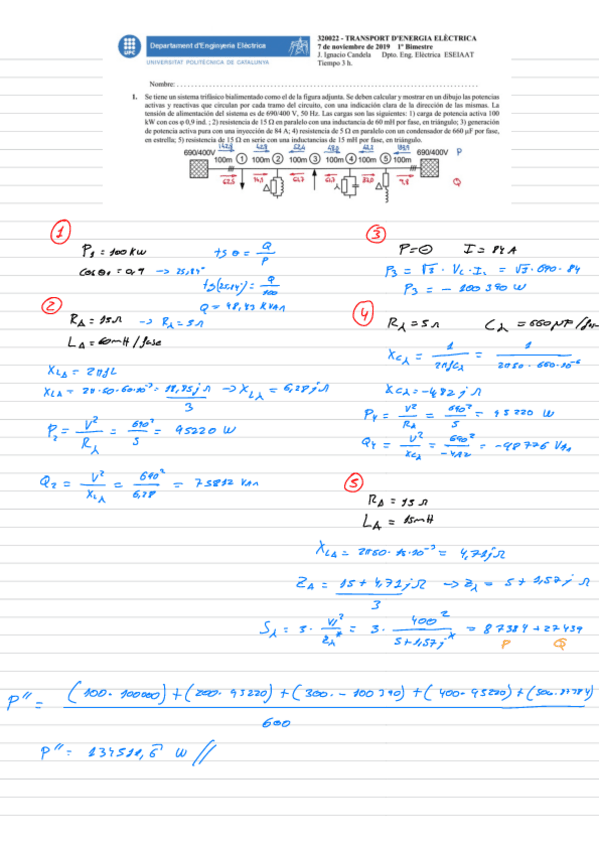 Departament d'Enginyeria Elèctrica
UPC
UNIVERSITAT POLITÈCNICA DE CATALUNYA
320022 - TRANSPORT D'ENERGIA ELÈCTRICA
7 de noviembre de 2019 1º Bimestre
J. Ignacio Candela Dpto. Eng. Elèctrica ESEIAAT
Tiempo 3 h.
Nombre:
1. Se tiene un sistema trifásico bialimentado como el de la figura adjunta. Se deben calcular y mostrar en un dibujo las potencias
activas y reactivas que circulan por cada tramo del circuito, con una indicación clara de la dirección de las mismas. La
tensión de alimentación del sistema es de 690/400 V, 50 Hz. Las cargas son las siguientes: 1) carga de potencia activa 100
kW con cos φ 0,9 ind. ; 2) resistencia de 15 Ω en paralelo con una inductancia de 60 mH por fase, en triángulo; 3) generación
de potencia activa pura con una inyección de 84 A; 4) resistencia de 5 Ω en paralelo con un condensador de 660 μF por fase,
en estrella; 5) resistencia de 15 Ω en serie con una inductancia de 15 mH por fase, en triángulo.
690/400V 690/400V P
100m 1 100m 2 100m 3 100m 4 100m 5 100m
Q
1
P1 = 100 kW tg θ = Q/P
cosθ1 = 0,9 -> 25,84°
tg(25,84°) = Q/100
Q = 48,43 KVAr
2
RΔ = 15Ω -> Rλ = 5Ω
LΔ = 60mH / fase
XLΔ = 2πfL
XLΔ = 2π·50·60·10⁻³ = 18,85jΩ / 3 -> XLλ = 6,28jΩ
P2 = V²/Rλ = 690²/5 = 95220 W
Q2 = V²/XLλ = 690²/6,28 = 75812 VAr
3
P = ⊖ I = 84 A
P3 = √3 · VL · IL = √3 · 690 · 84
P3 = - 100390 W
4
Rλ = 5Ω Cλ = 660μF/
XCλ = 1/2πfCλ = 1/2π50·660·10⁻⁶
XCλ = -4,82 jΩ
P4 = V²/Rλ = 690²/5 = 95220 W
Q4 = V²/XCλ = 690²/-4,82 = -98776 VAr
5
RΔ = 15Ω
LΔ = 15mH
XLΔ = 2π50·15·10⁻³ = 4,71jΩ
ZΔ = 15 + 4,71jΩ / 3 -> Zλ = 5 + 1,57jΩ
Sλ = 3 · Vf²/Zλ* = 3 · 400²/5+1,57j* = 87384 + 27439
P Q
P'' = (100·100000) + (200·95220) + (300·-100390) + (400·95220) + (500·87384) / 600
P'' = 134511,6 W //